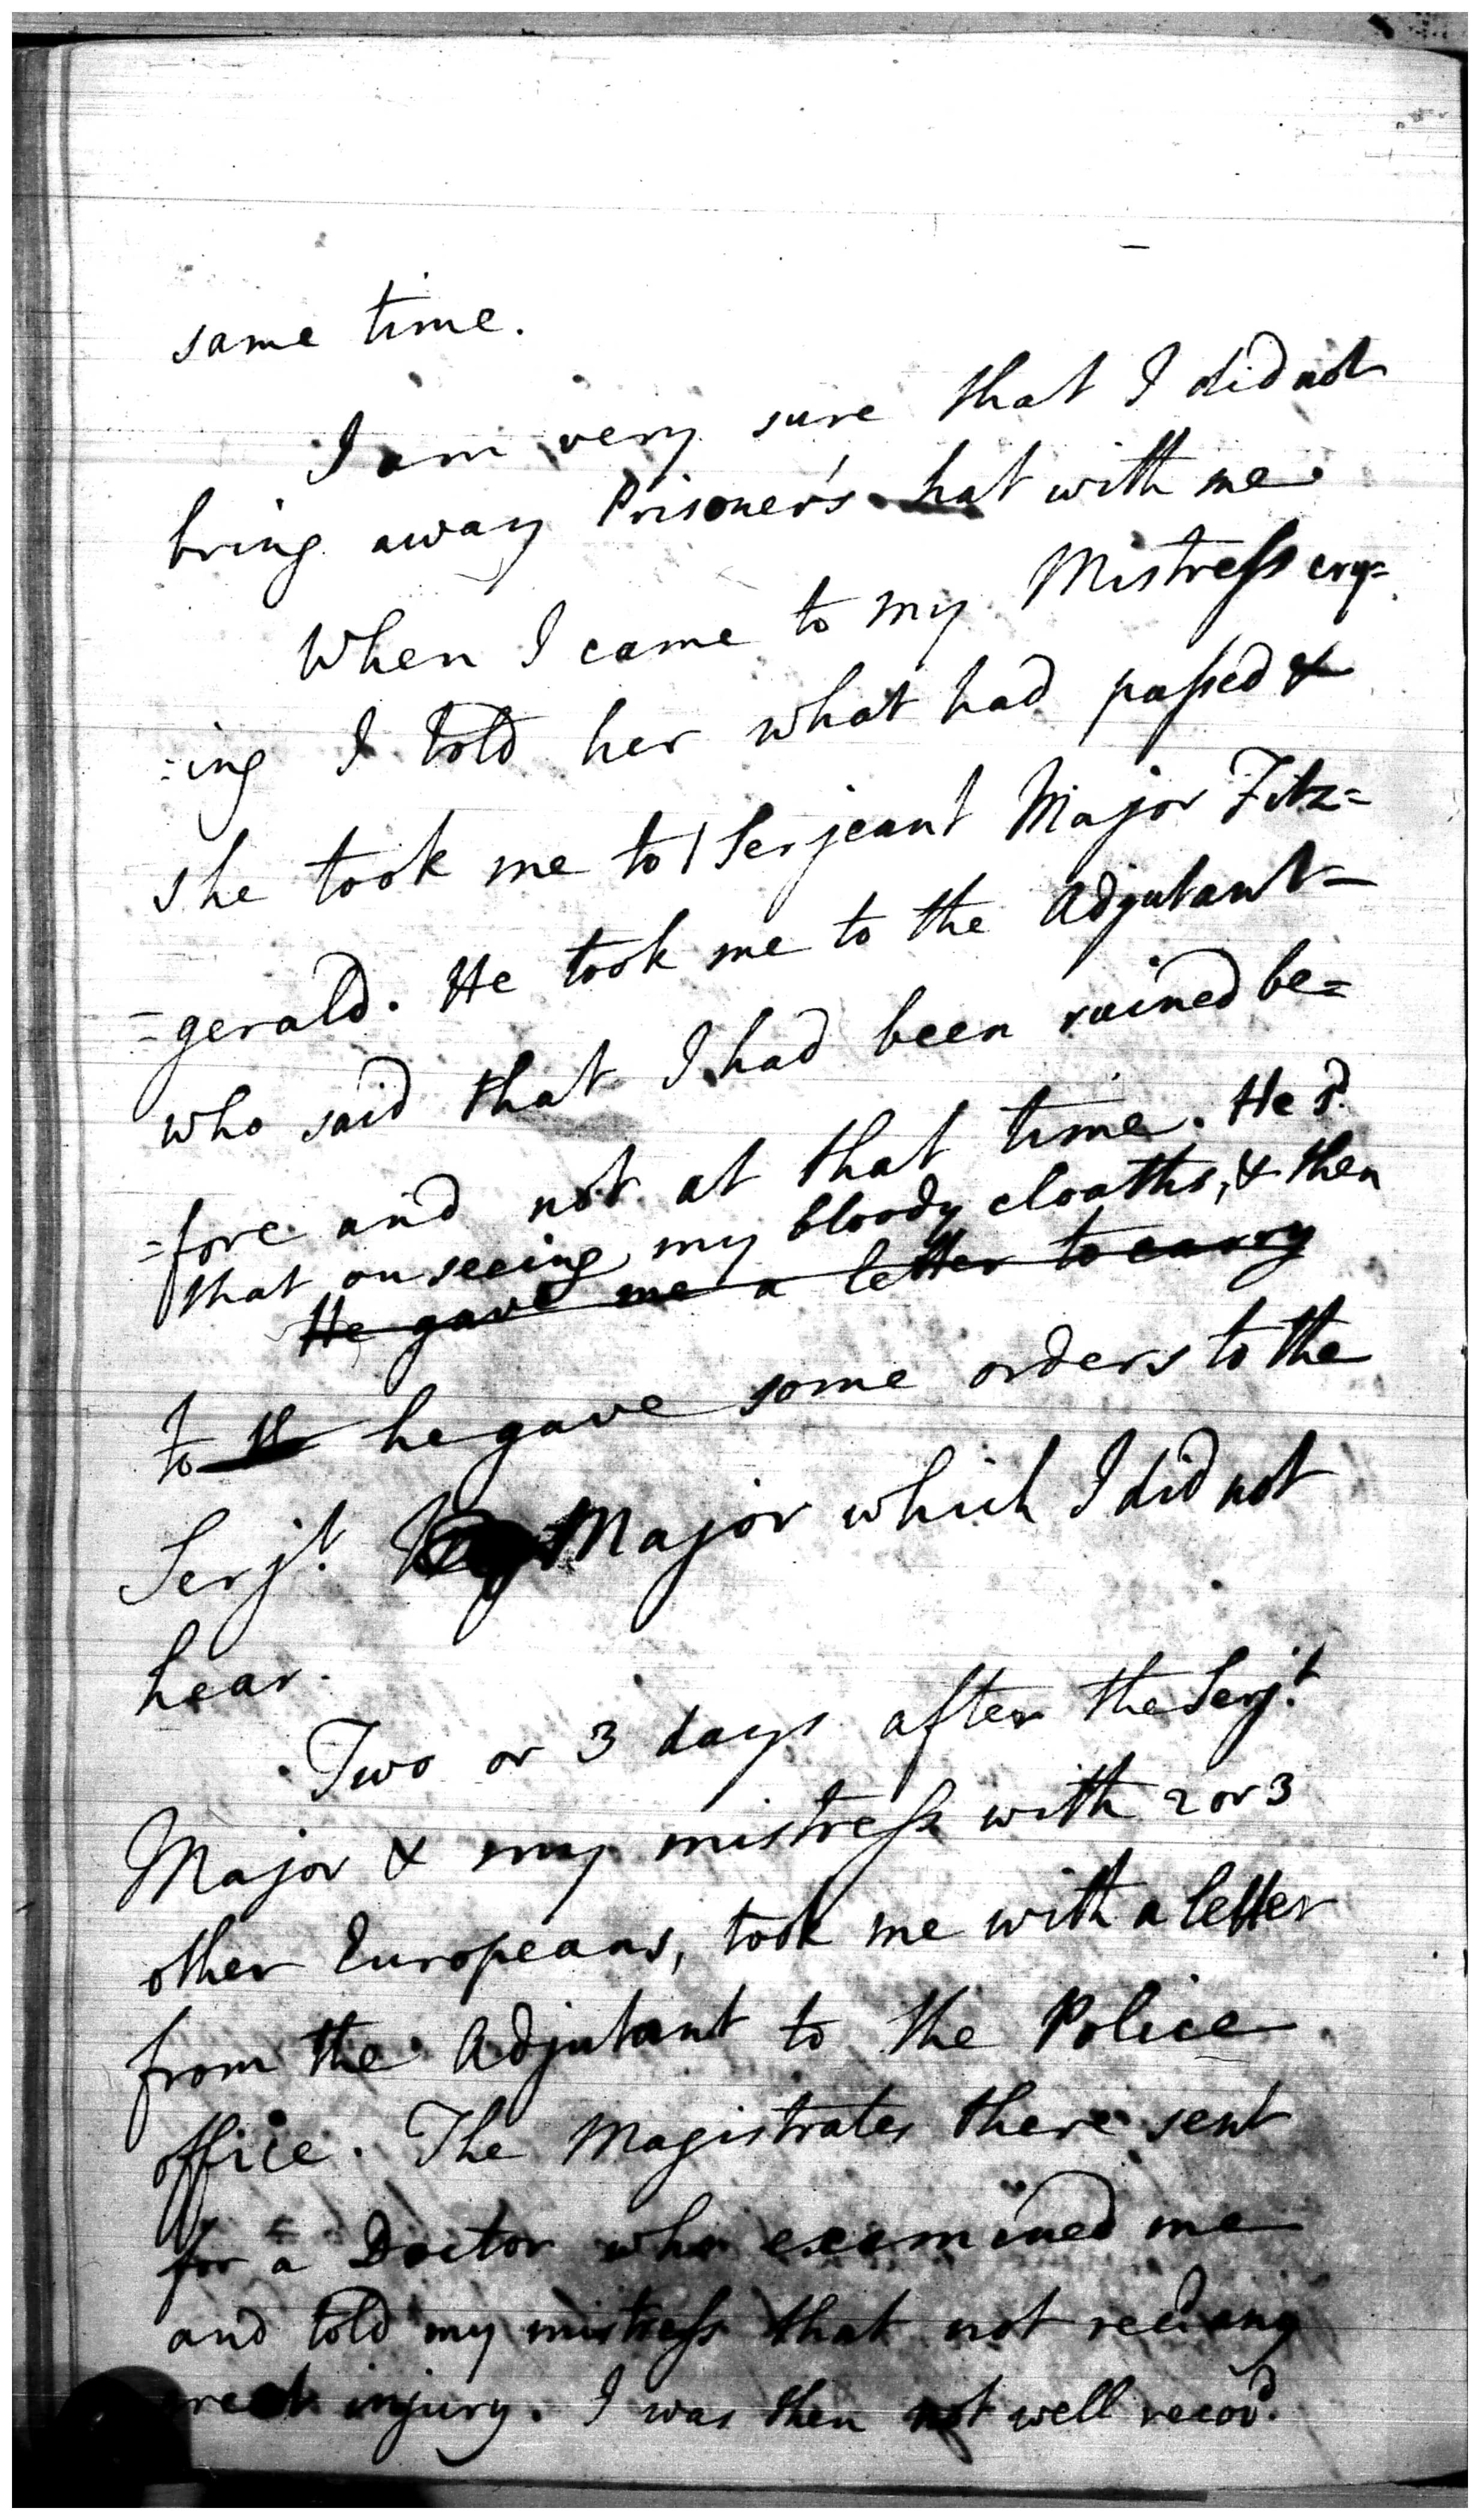 same time.
I am very sure that I did not
bring away Prisoner's hat with me.
When I came to my Mistress cry=
=ing I told her what had passed &
she took me to Serjeant Major Fitz=
=gerald. He took me to the Adjutant
who said that I had been ruined be=
=fore and not at that time. He sd.
that on seeing my bloody cloaths, & then
He gave me a letter to carry
to he gave some orders to the
Serjt. Major which I did not
hear.
Two or 3 days after the Serjt.
Major & my mistress with 2 or 3
other Europeans, took me with a letter
from the Adjutant to the Police
office. The Magistrates there sent
for a Doctor who examined me
and told my mistress that not recd any
great injury. I was then not well recovd.